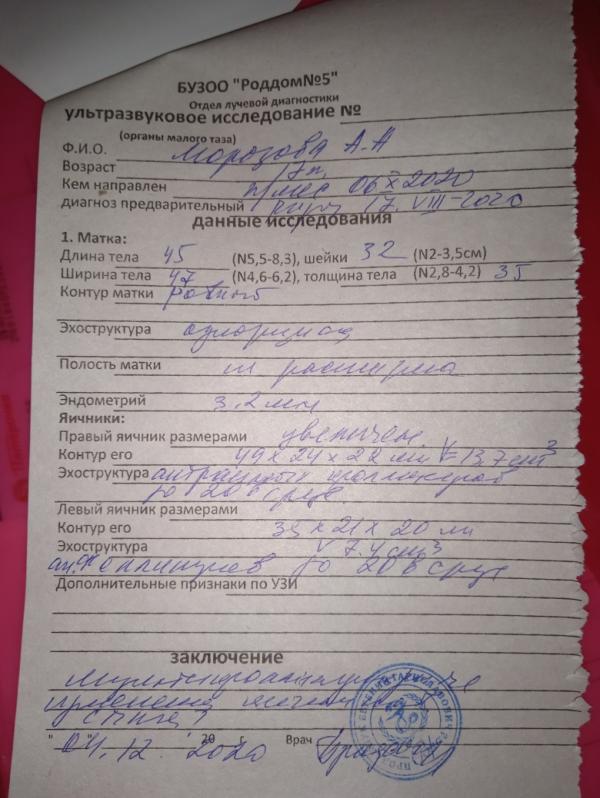 БУЗОО "Роддом№5"
Отдел лучевой диагностики
ультразвуковое исследование №
(органы малого таза)
Ф.И.О. Морозова А.А
Возраст
Кем направлен п/мес 06 X 2020
диагноз предварительный 17. VIII-2020
данные исследования
1. Матка:
Длина тела 45 (N5,5-8,3), шейки 32 (N2-3,5см)
Ширина тела 47 (N4,6-6,2), толщина тела (N2,8-4,2) 35
Контур матки ровный
Эхоструктура однородная
Полость матки не расширена
Эндометрий 3.2мм
Яичники:
Правый яичник размерами увеличен.
Контур его 49 x 24 x 22 мм V=13.7 cm³
Эхоструктура антральных фолликулов
до 20 в срезе
Левый яичник размерами
Контур его 35 x 21 x 20 мм
Эхоструктура V 7.4 cm³
ан. фолликулов до 20 в срезе
Дополнительные признаки по УЗИ
заключение
Мультифолликулярные
изменения яичников
"04." 12. 2020 20 г. Врач